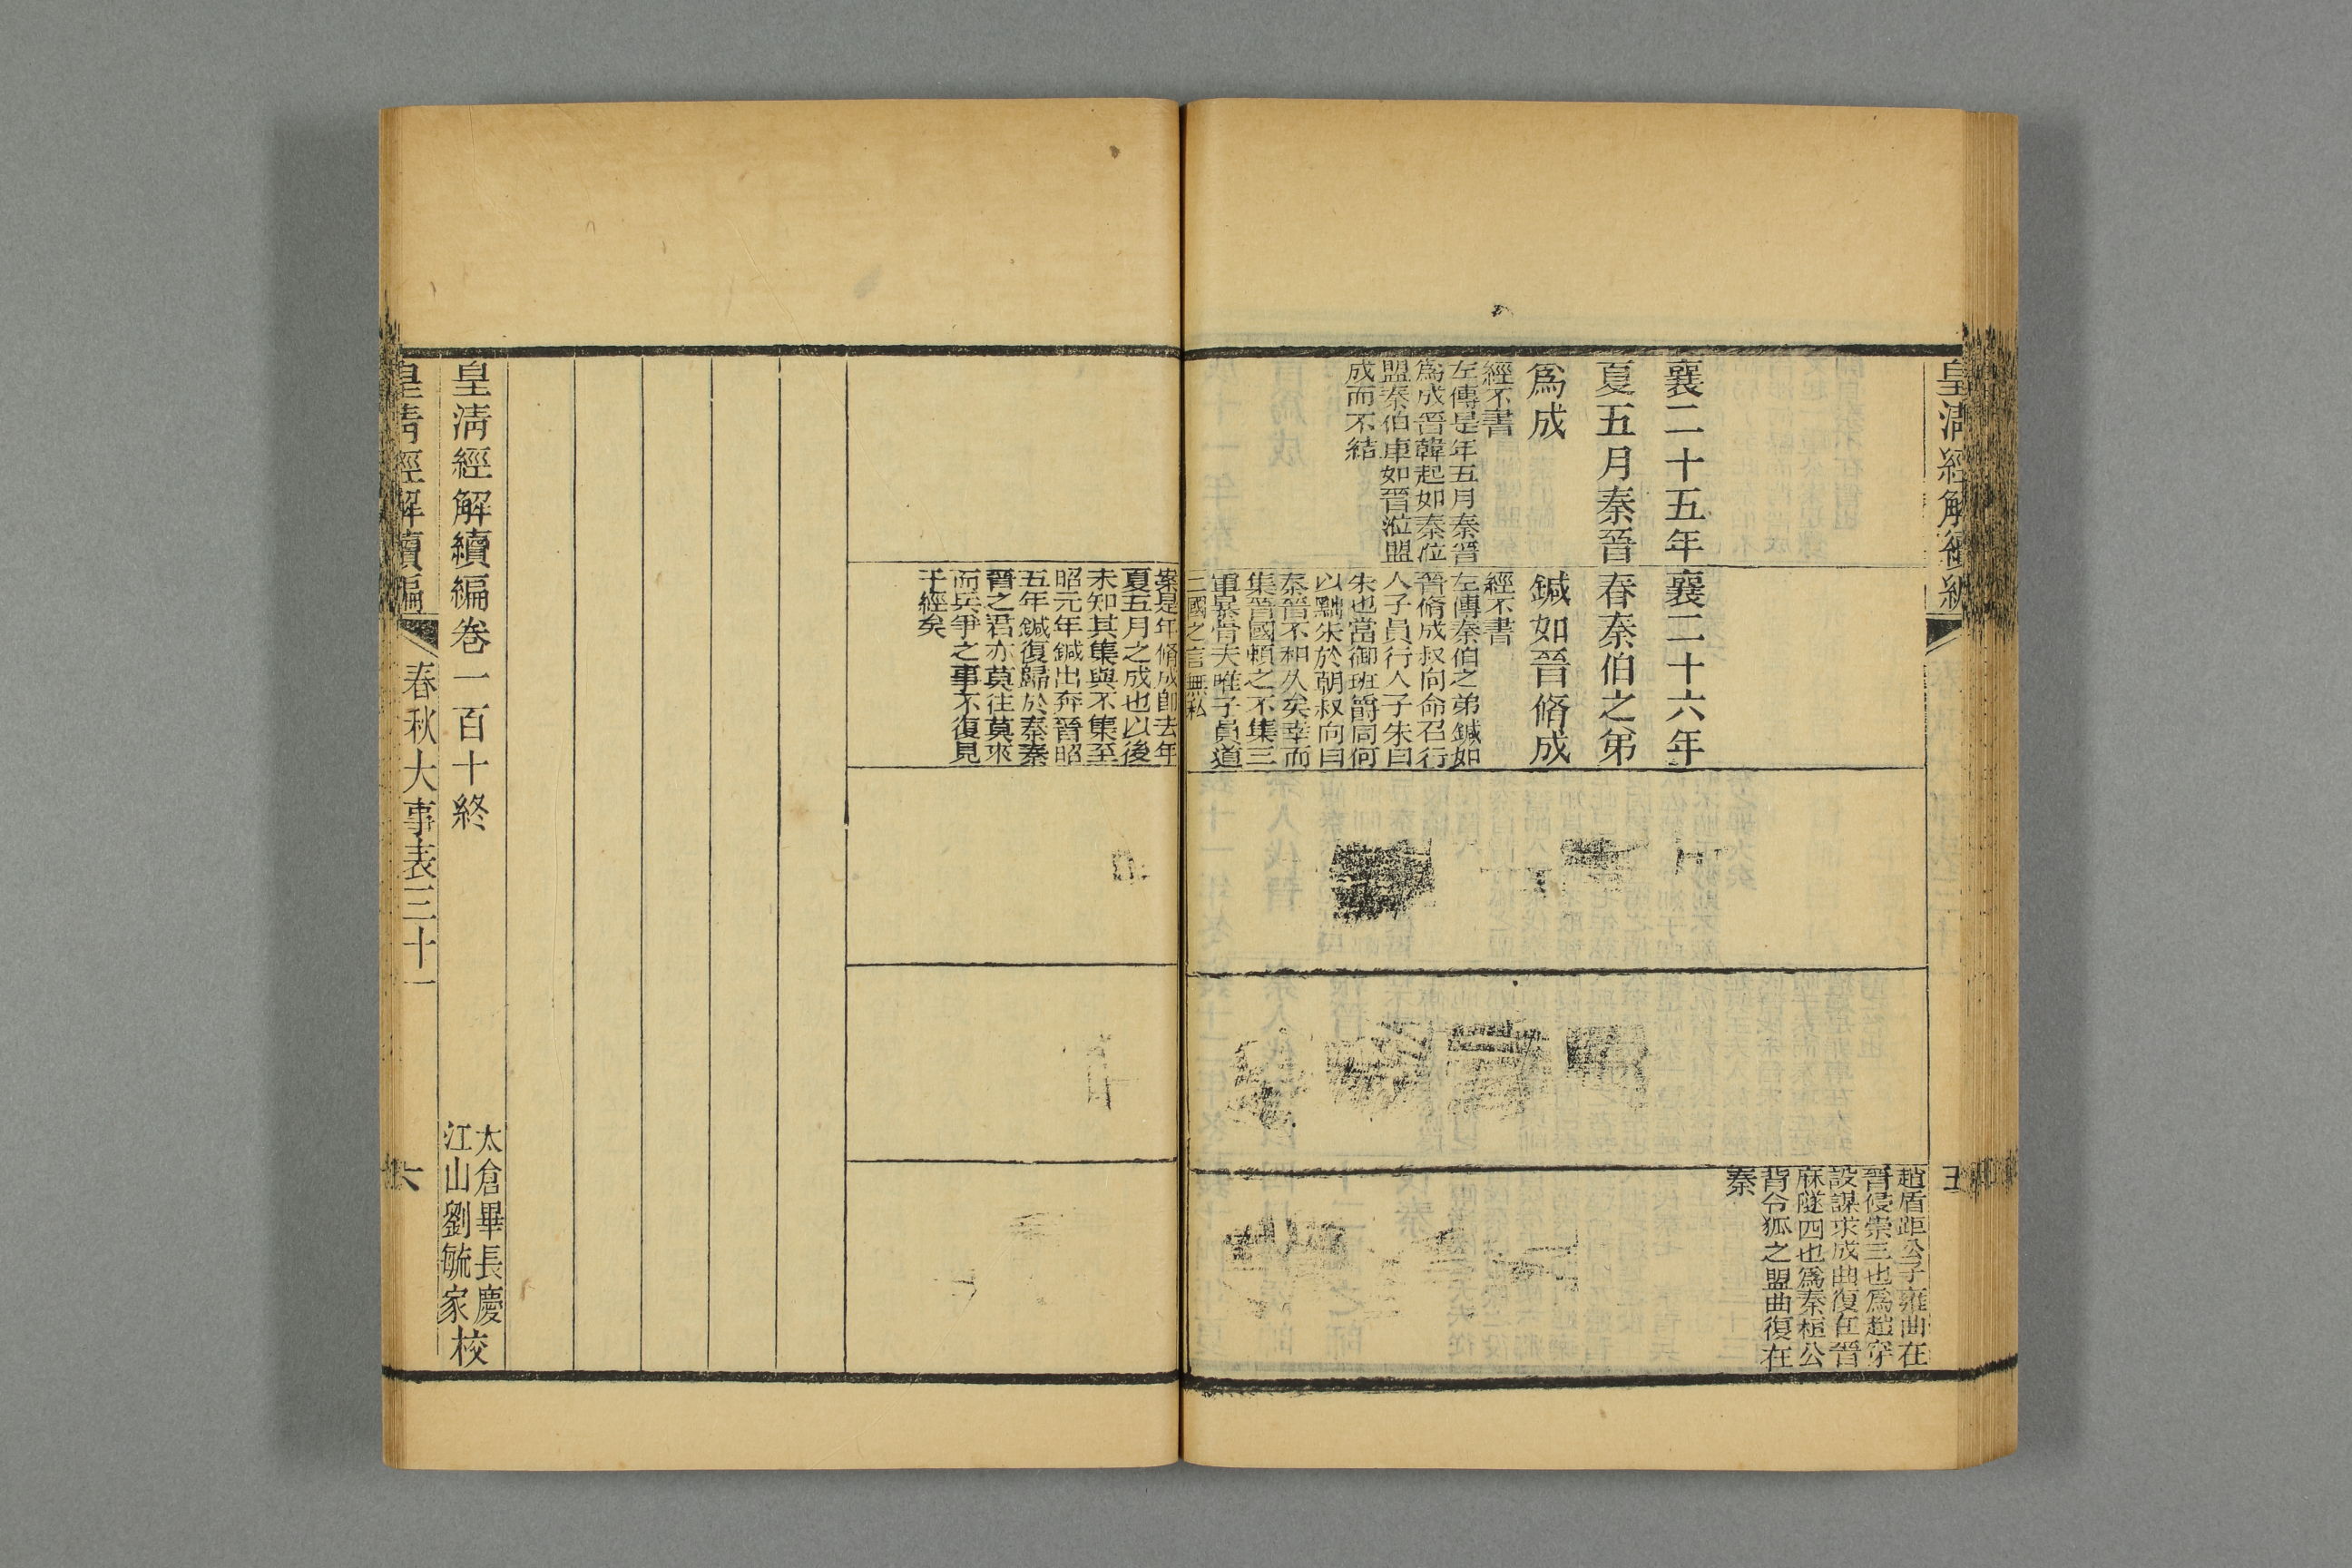 皇清經解續編
五
趙盾距公子雍曲在
晉侵崇三也爲趙穿
設謀求成曲復在晉
麻隧四也爲秦桓公
背令狐之盟曲復在
秦
襄二十五年
夏五月秦晉
爲成
經不書
左傳是年五月秦晉
爲成晉韓起如秦涖
盟秦伯車如晉涖盟
成而不結
襄二十六年
春秦伯之弟
鍼如晉脩成
經不書
左傳秦伯之弟鍼如
晉脩成叔向命召行
人子員行人子朱曰
朱也當御班爵同何
以黜朱於朝叔向曰
秦晉不和久矣幸而
集晉國賴之不集三
軍暴骨夫唯子員道
二國之言無私
案是年脩成卽去年
夏五月之成也以後
未知其集與不集至
昭元年鍼出奔晉昭
五年鍼復歸於秦秦
晉之君亦莫往莫來
而兵爭之事不復見
于經矣
皇清經解續編卷一百十終
太倉畢長慶
江山劉毓家
校
皇清經解續編
春秋大事表三十一
六